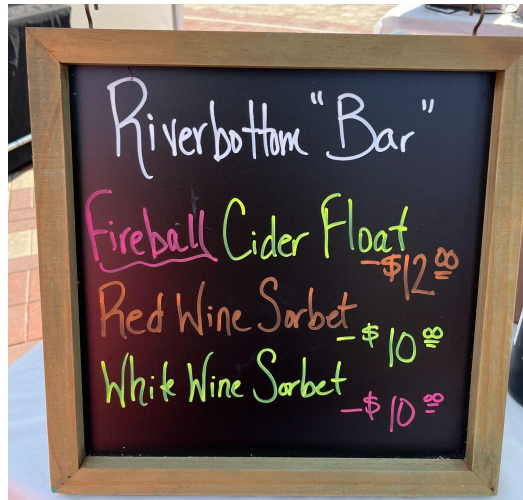 Riverbottom "Bar"
Fireball Cider Float
-$12.00
Red Wine Sorbet
-$10.00
White Wine Sorbet
-$10.00